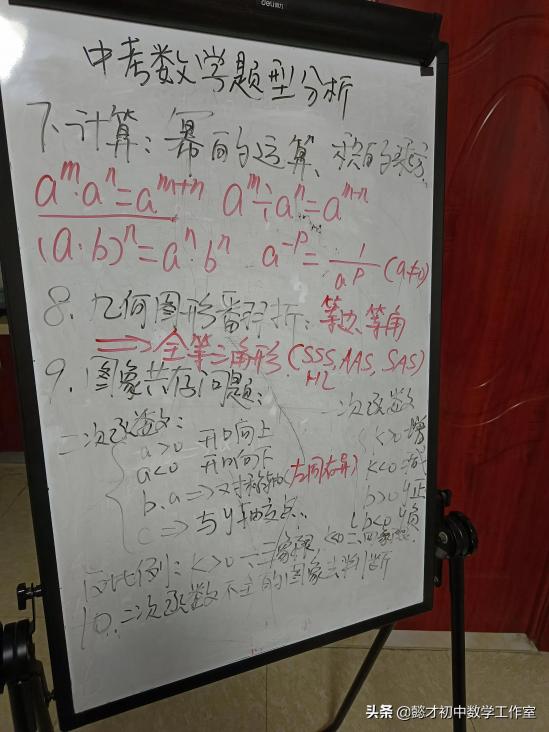 deli 得力
中考数学题型分析
7、计算：幂的运算、积的乘方.
a^m·a^n=a^{m+n} a^m÷a^n=a^{m-n}
(a·b)^n=a^n·b^n a^{-p}=1/a^p (a≠0)
8.几何图形翻折：等边、等角
⇒全等三角形(SSS,AAS,SAS)
HL
9.图象共存问题：
二次函数：
a>0 开口向上
a<0 开口向下
b.a⇒对称轴(左同右异)
c⇒与y轴交点.
一次函数
k>0 增
k<0 减
b>0 y正
b<0 y负
反比例：k>0 一三象限, k<0 二四象限
10.二次函数 的图象去判断
头条 @懿才初中数学工作室